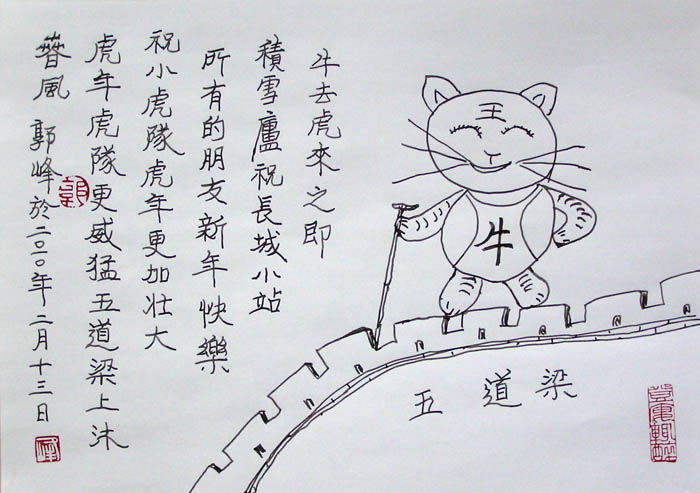 牛去虎來之即
積雪廬祝長城小站
所有的朋友新年快樂
祝小虎隊虎年更加壯大
虎年虎隊更威猛五道梁上沐
春風 郭峰於二〇一〇年二月十三日
王
牛
五道梁